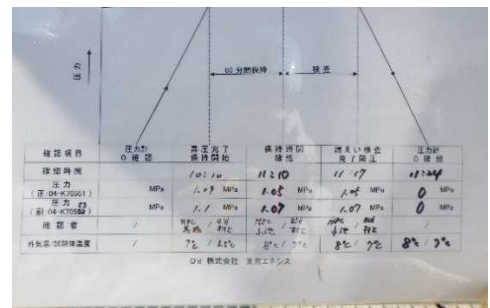 圧力
60分間保持
検査
確認項目 圧力計 0確認 昇圧完了 保持開始 保持時間 確認 漏えい検査 完了降圧 圧力計 0確認
確認時間 10:10 11:10 11:17 11:24
圧力 (正:04-K70551) MPa 1.09 MPa 1.05 MPa 1.05 MPa 0 MPa
圧力 MPa 1.1 MPa 1.07 MPa 1.07 MPa 0 MPa
確認者 / / / / /
外気温/試験体温度 / 7℃ / 8℃ / 9℃ 8℃ / 9℃ 8℃ / 9℃
株式会社 東京エネシス